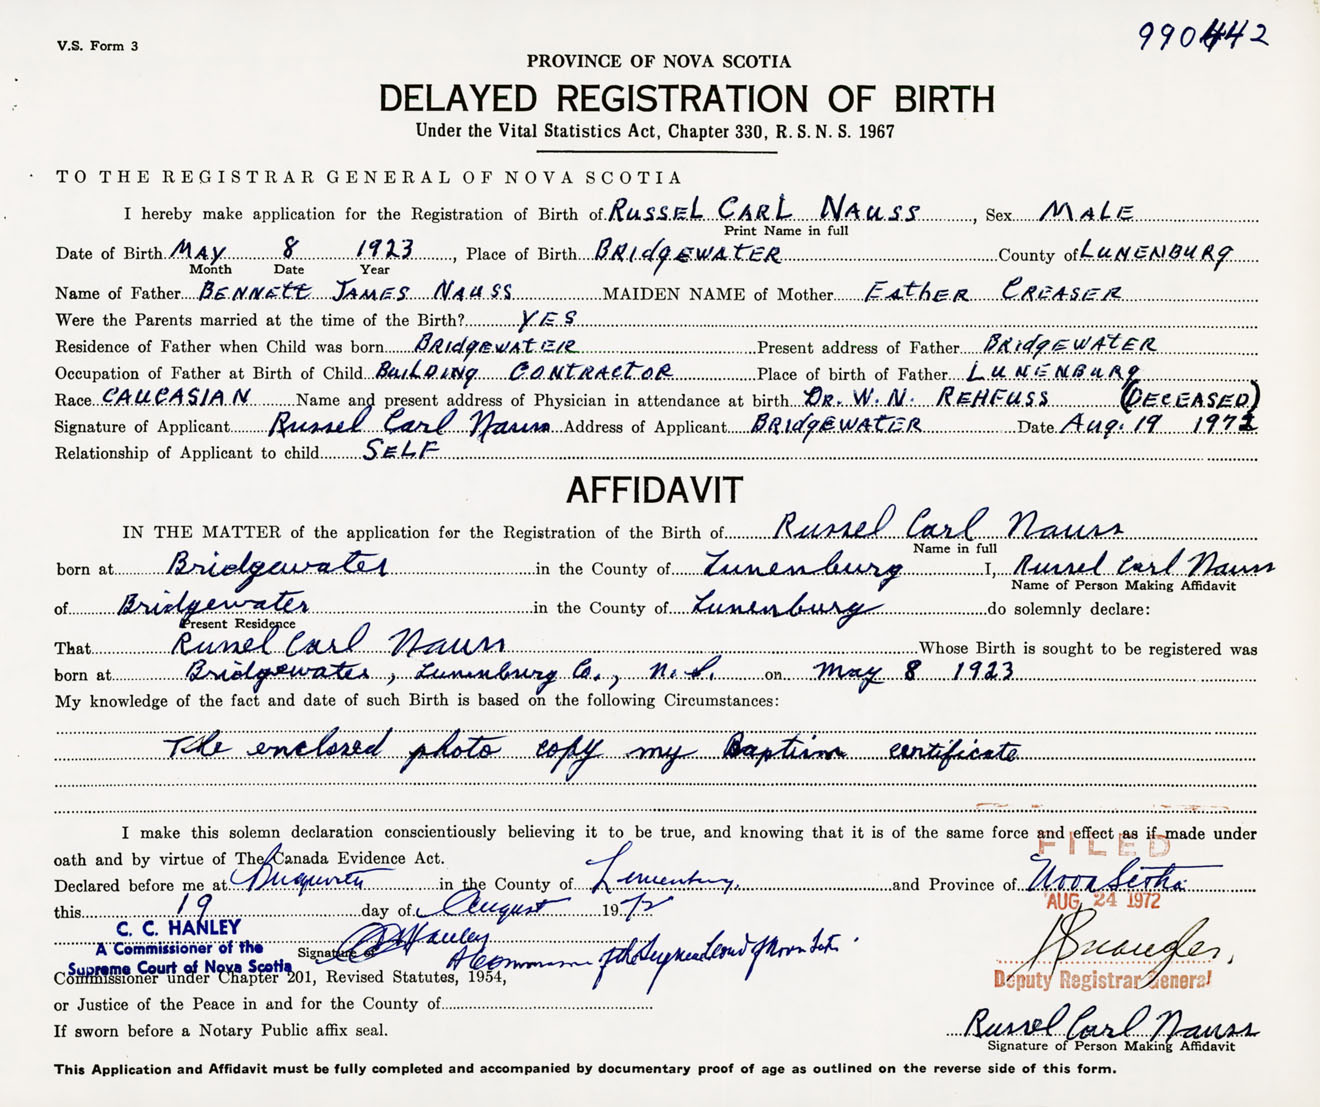 990442
V.S. Form 3
PROVINCE OF NOVA SCOTIA
DELAYED REGISTRATION OF BIRTH
Under the Vital Statistics Act, Chapter 330, R.S.N.S. 1967
TO THE REGISTRAR GENERAL OF NOVA SCOTIA
I hereby make application for the Registration of Birth of RUSSEL CARL NAUSS, Sex MALE
Print Name in full
Date of Birth MAY 8 1923, Place of Birth BRIDGEWATER County of LUNENBURG
Month Date Year
Name of Father BENNETT JAMES NAUSS MAIDEN NAME of Mother EstHER CREASER
Were the Parents married at the time of the Birth? YES
Residence of Father when Child was born BRIDGEWATER Present address of Father BRIDGEWATER
Occupation of Father at Birth of Child BUILDING CONTRACTOR Place of birth of Father LUNENBURG
Race CAUCASIAN Name and present address of Physician in attendance at birth DR. W. N. REHFUSS (DECEASED)
Signature of Applicant Russel Carl Nauss Address of Applicant BRIDGEWATER Date Aug. 19 1972
Relationship of Applicant to child SELF
AFFIDAVIT
IN THE MATTER of the application for the Registration of the Birth of Russel Carl Nauss
Name in full
born at Bridgewater in the County of Lunenburg I, Russel Carl Nauss
Name of Person Making Affidavit
of Bridgewater in the County of Lunenburg do solemnly declare:
Present Residence
That Russel Carl Nauss Whose Birth is sought to be registered was
born at Bridgewater, Lunenburg Co., N.S. on May 8 1923
My knowledge of the fact and date of such Birth is based on the following Circumstances:
The enclosed photo copy my Baptism certificate
I make this solemn declaration conscientiously believing it to be true, and knowing that it is of the same force and effect as if made under
oath and by virtue of The Canada Evidence Act.
FILED
Declared before me at Bridgewater in the County of Lunenburg and Province of Nova Scotia
AUG 24 1972
this 19 day of August 1972
C. C. HANLEY
A Commissioner of the
Supreme Court of Nova Scotia
Signature of CC Hanley
A Commissioner of the Supreme Court of Nova Scotia
Commissioner under Chapter 201, Revised Statutes, 1954,
Deputy Registrar General
or Justice of the Peace in and for the County of
If sworn before a Notary Public affix seal.
Russel Carl Nauss
Signature of Person Making Affidavit
This Application and Affidavit must be fully completed and accompanied by documentary proof of age as outlined on the reverse side of this form.